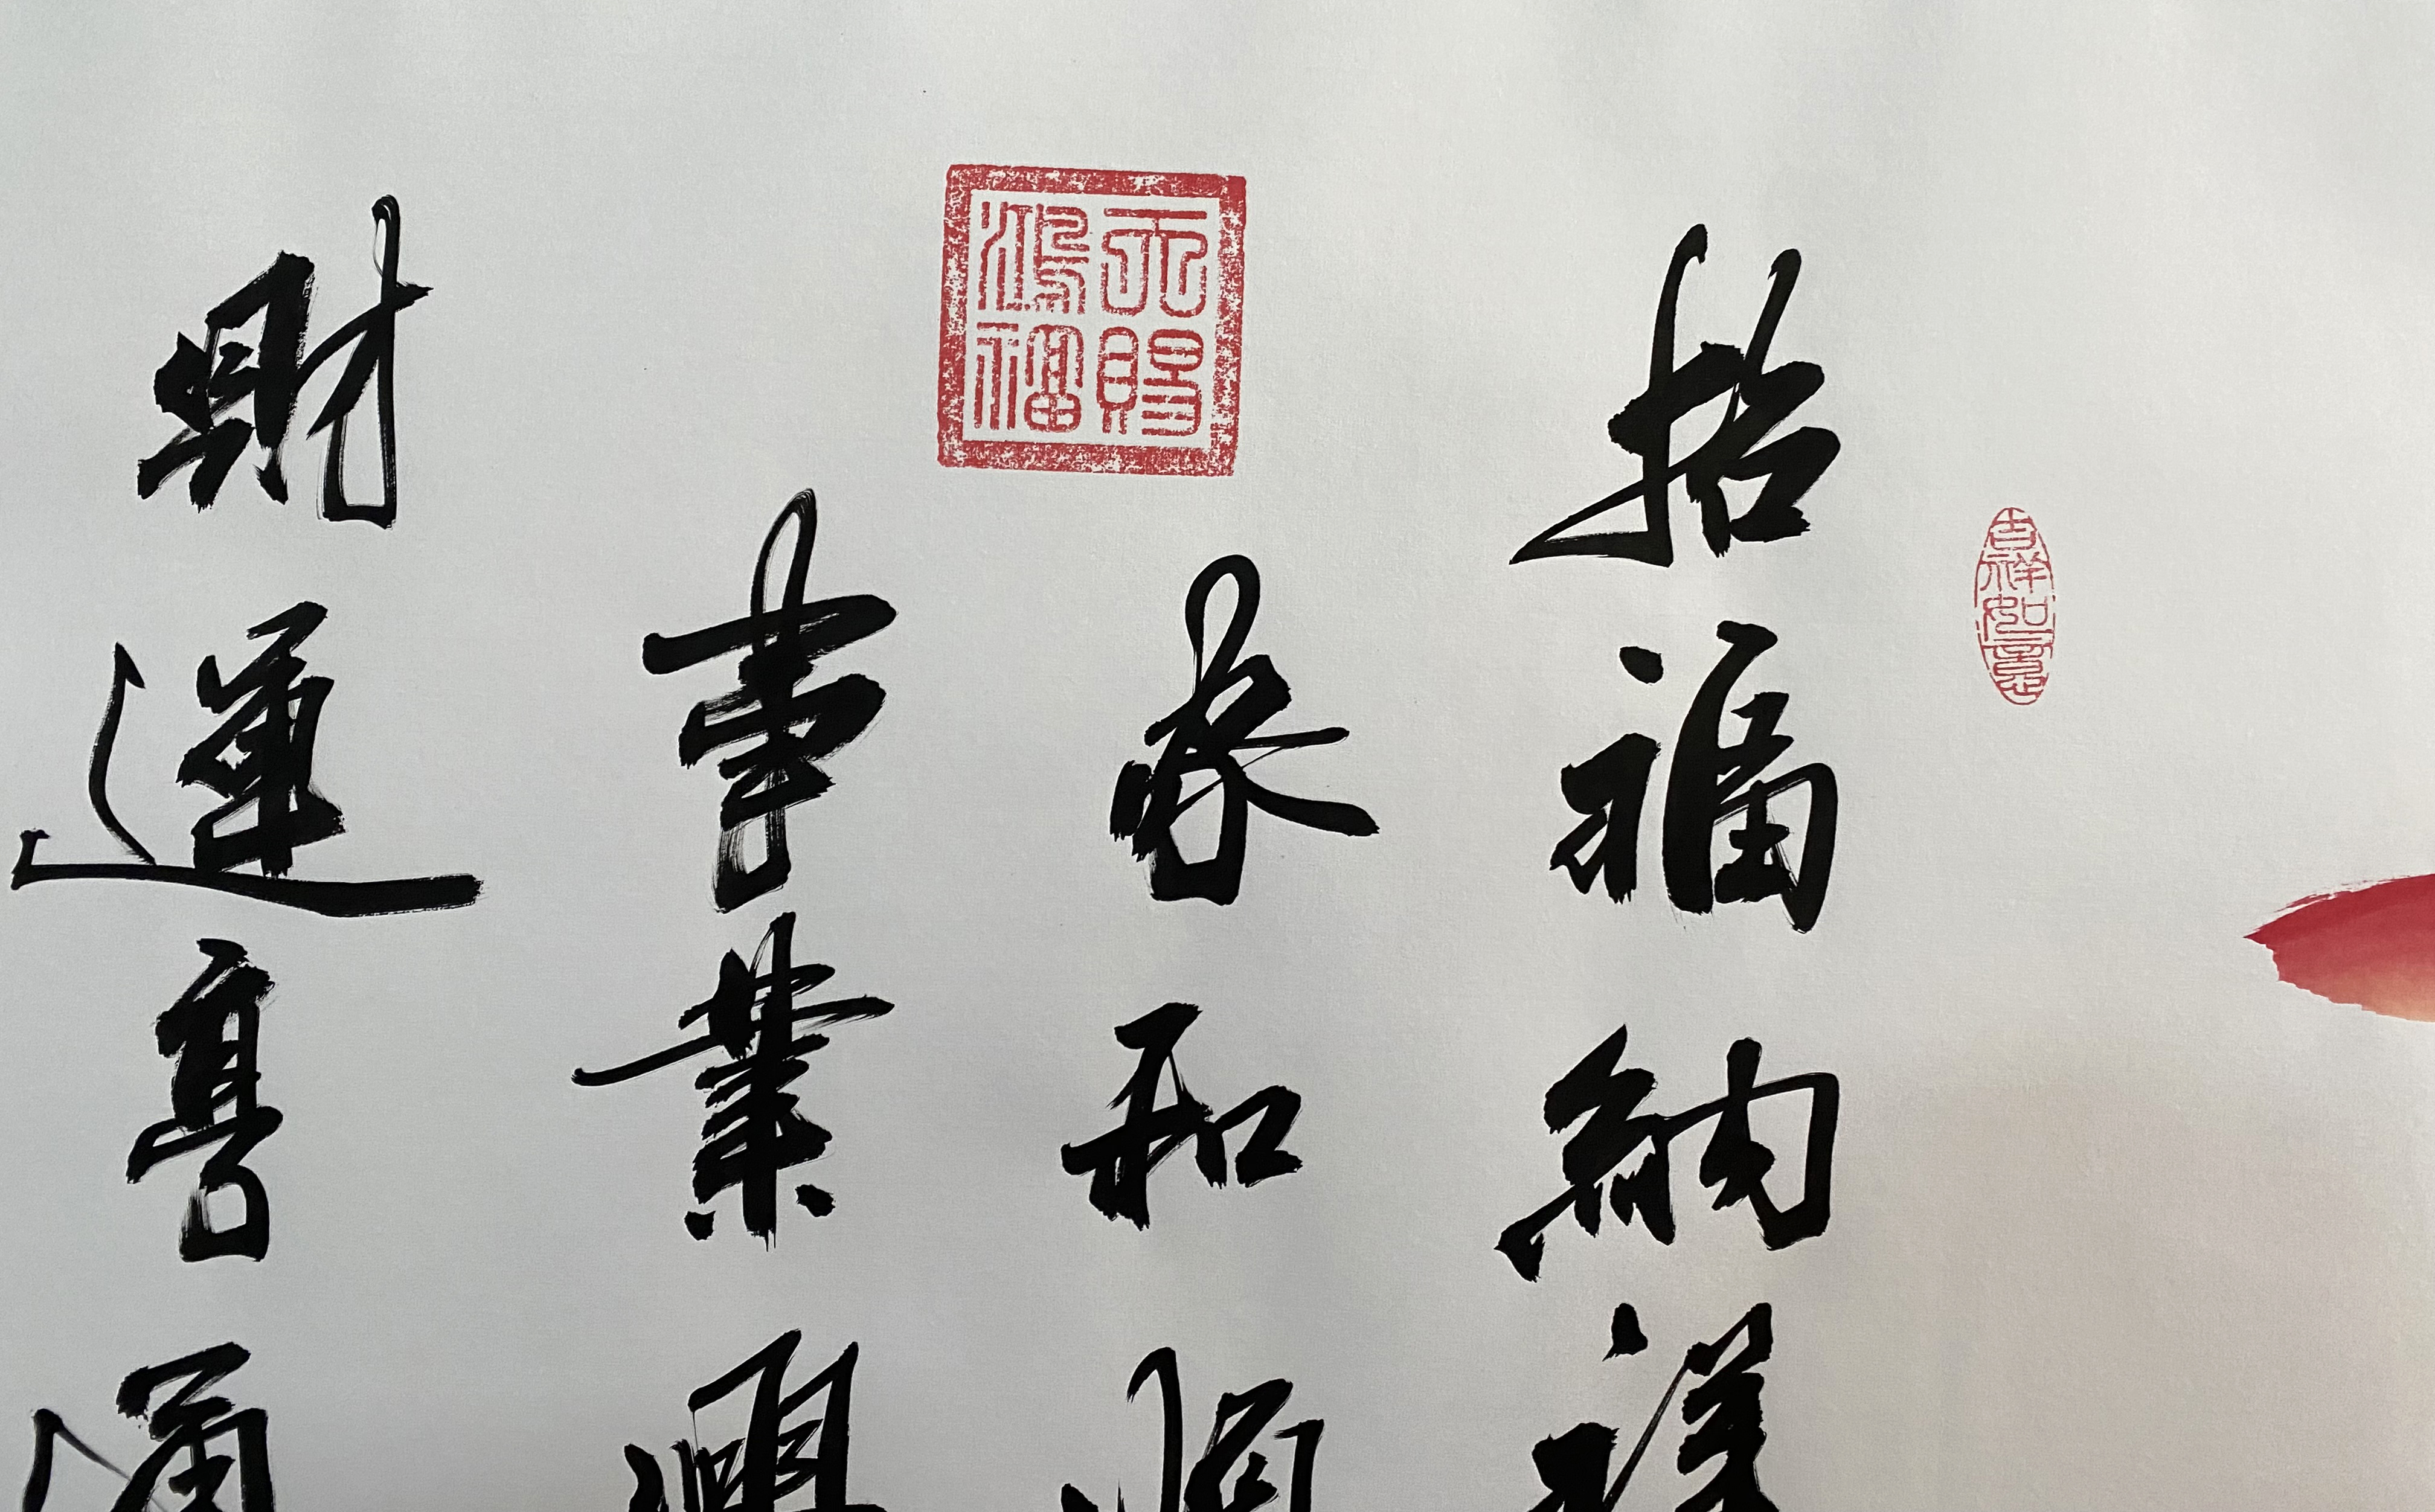 吉祥如意
招福納祥
天賜鴻福
家和順
事業興
財運亨通